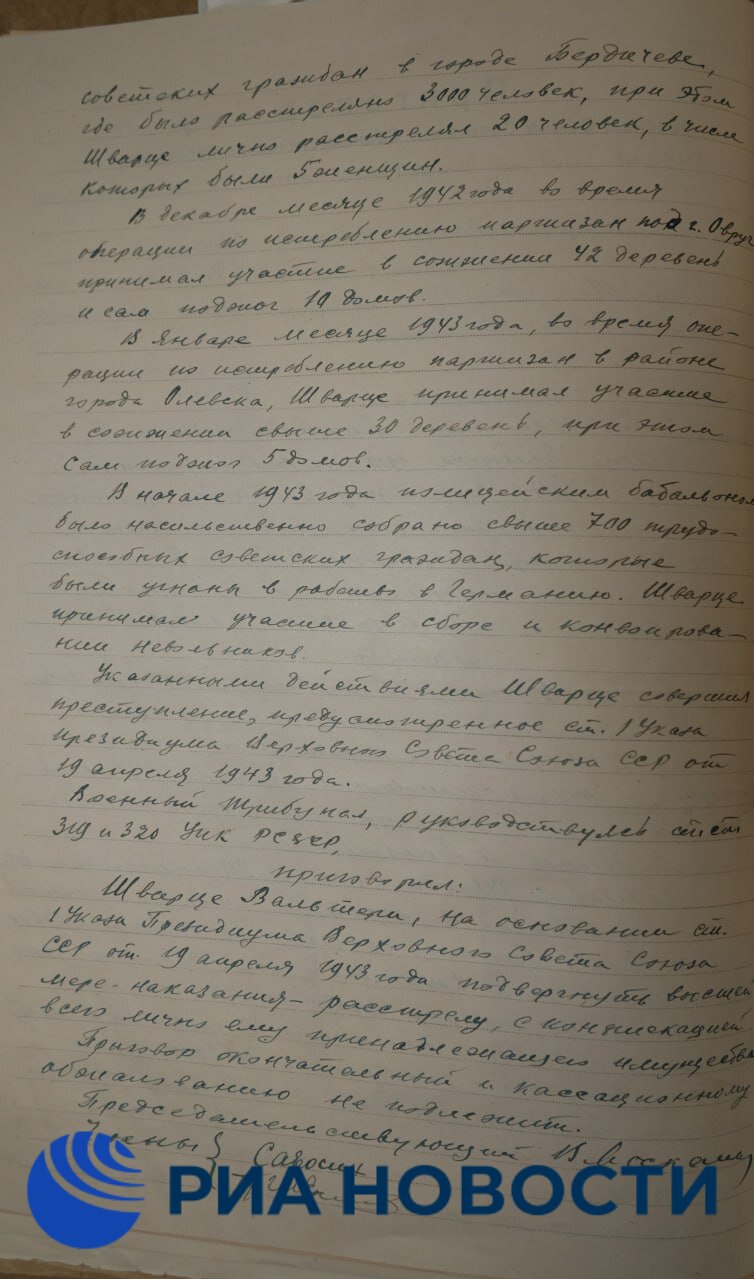 советских граждан в городе Бердичеве,
где было расстреляно 3000 человек, при этом
Шварце лично расстрелял 20 человек, в числе
которых были 5 женщин.
В декабре месяце 1942 года во время
операции по истреблению партизан под г. Овруч
принимал участие в сожжении 42 деревень
и сам поджог 10 домов.
В январе месяце 1943 года, во время опе-
рации по истреблению партизан в районе
города Олевска, Шварце принимал участие
в сожжении свыше 30 деревень, при этом
сам поджог 5 домов.
В начале 1943 года полицейским батальоном
было насильственно собрано свыше 700 трудо-
способных советских граждан, которые
были угнаны в рабство в Германию. Шварце
принимал участие в сборе и конвоирова-
нии невольников.
Указанными действиями Шварце совершил
преступление, предусмотренное ст. 1 Указа
президиума Верховного Совета Союза ССР от
19 апреля 1943 года.
Военный Трибунал, руководствуясь ст.ст.
319 и 320 УПК РСФСР,
приговорил:
Шварце Вальтера, на основании ст.
1 Указа Президиума Верховного Совета Союза
ССР от 19 апреля 1943 года подвергнуть высшей
мере-наказания – расстрелу, с конфискацией
всего лично ему принадлежащего имущества
Приговор окончательный и кассационному
обжалованию не подлежит.
Председательствующий
Члены {
РИА НОВОСТИ